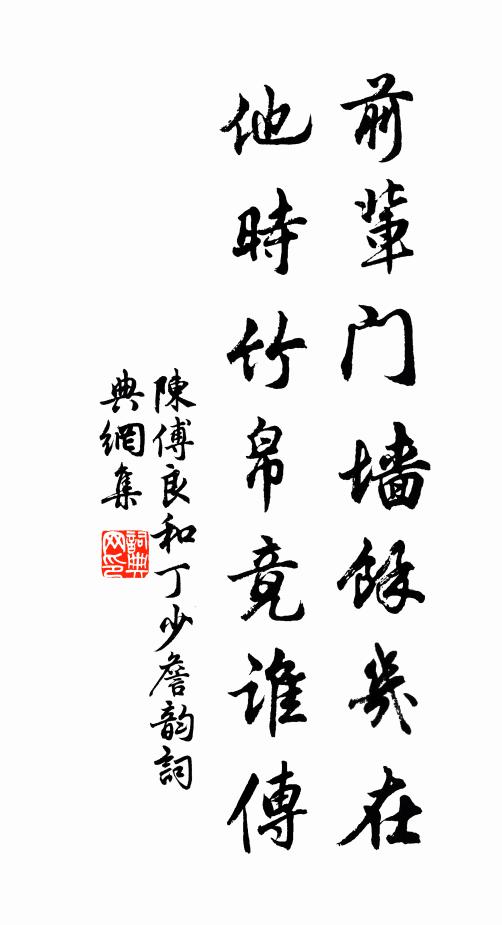 前輩門墻餘幾在
他時竹帛竟誰傳
陳傅良和丁少詹韵詞
典網集
詞典网印